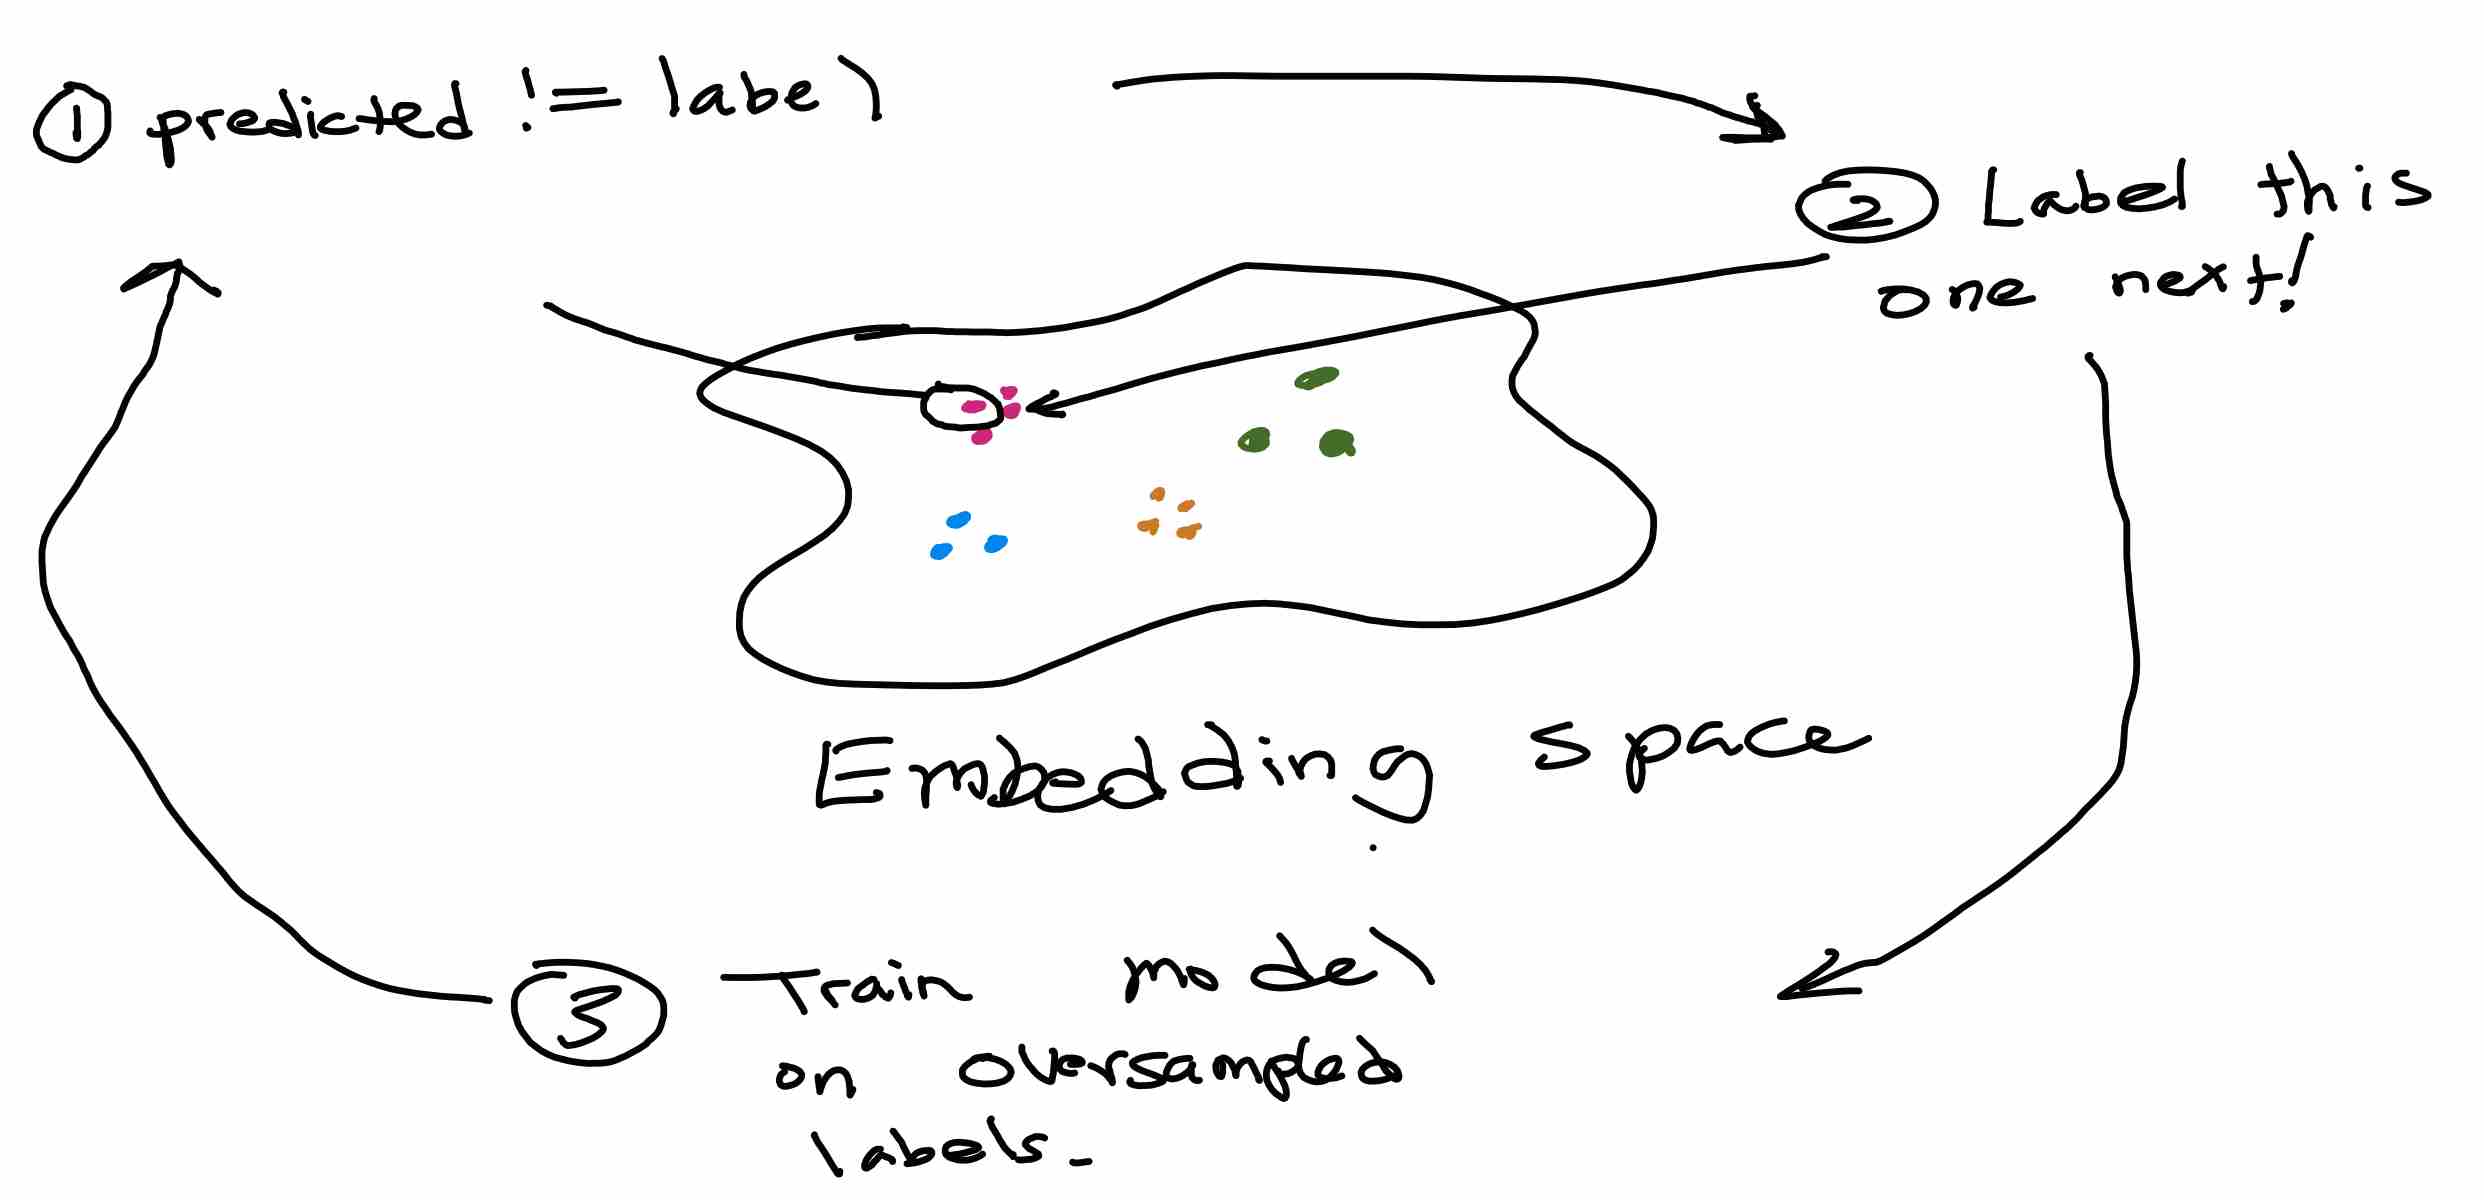 ① predicted != label
② Label this
one next!
Embedding space
③ Train model
on oversampled
labels.